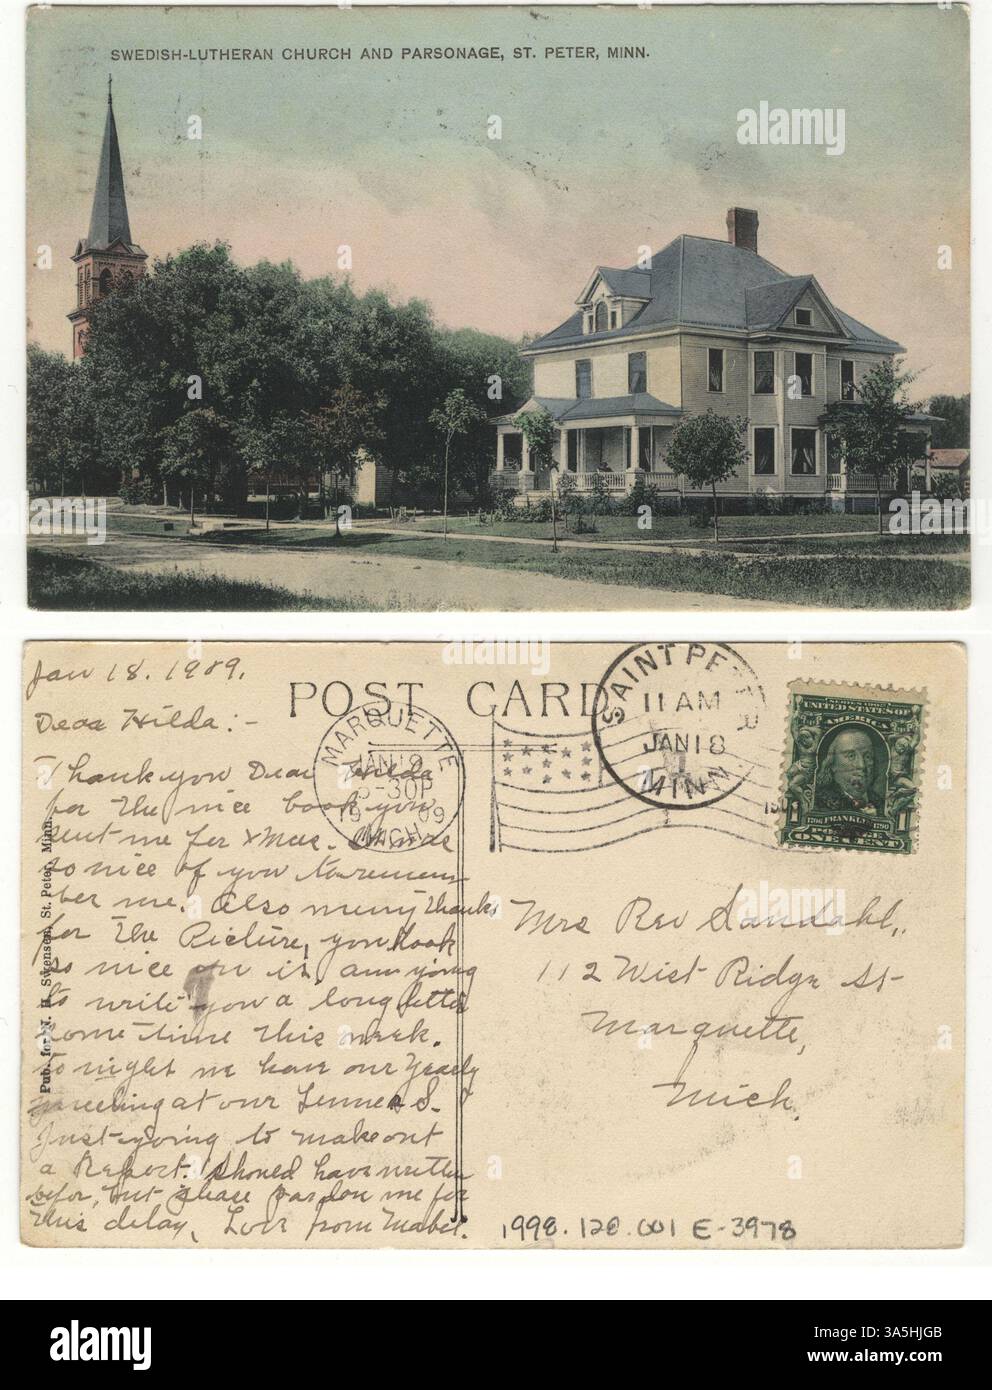 SWEDISH-LUTHERAN CHURCH AND PARSONAGE, ST. PETER, MINN.
alamy
alamy
alamy
alamy
alamy
Jan 18. 1909.
POST CARD
Dear Hilda:-
Thank you Dear Hilda
for the nice book you
sent me for Xmas. It was
so nice of you to remem
ber me. Also many thanks
for the Picture, you look
so nice on it, am going
to write you a long letter
some time this week.
to night we have our Yearly
meeting at our S.
Just going to make out
a Report. Should have written
befor, but please pardon me for
this delay, Love from Mabel.
Pub. for N. H. Swenson, St. Peter, Minn.
MARQUETTE
JAN 19
5-30P
19 09
MICH.
SAINT PETER
11 AM
JAN 18
MINN.
SERIES 1902
UNITED STATES OF
AMERICA
1706 FRANKLIN 1790
1 1
POSTAGE
ONE CENT
Mrs Rev Sandahl,
112 West Ridge St
Marquette,
Mich.
1998.120.001 E-3978
alamy
Image ID: 3A5HJGB
www.alamy.com